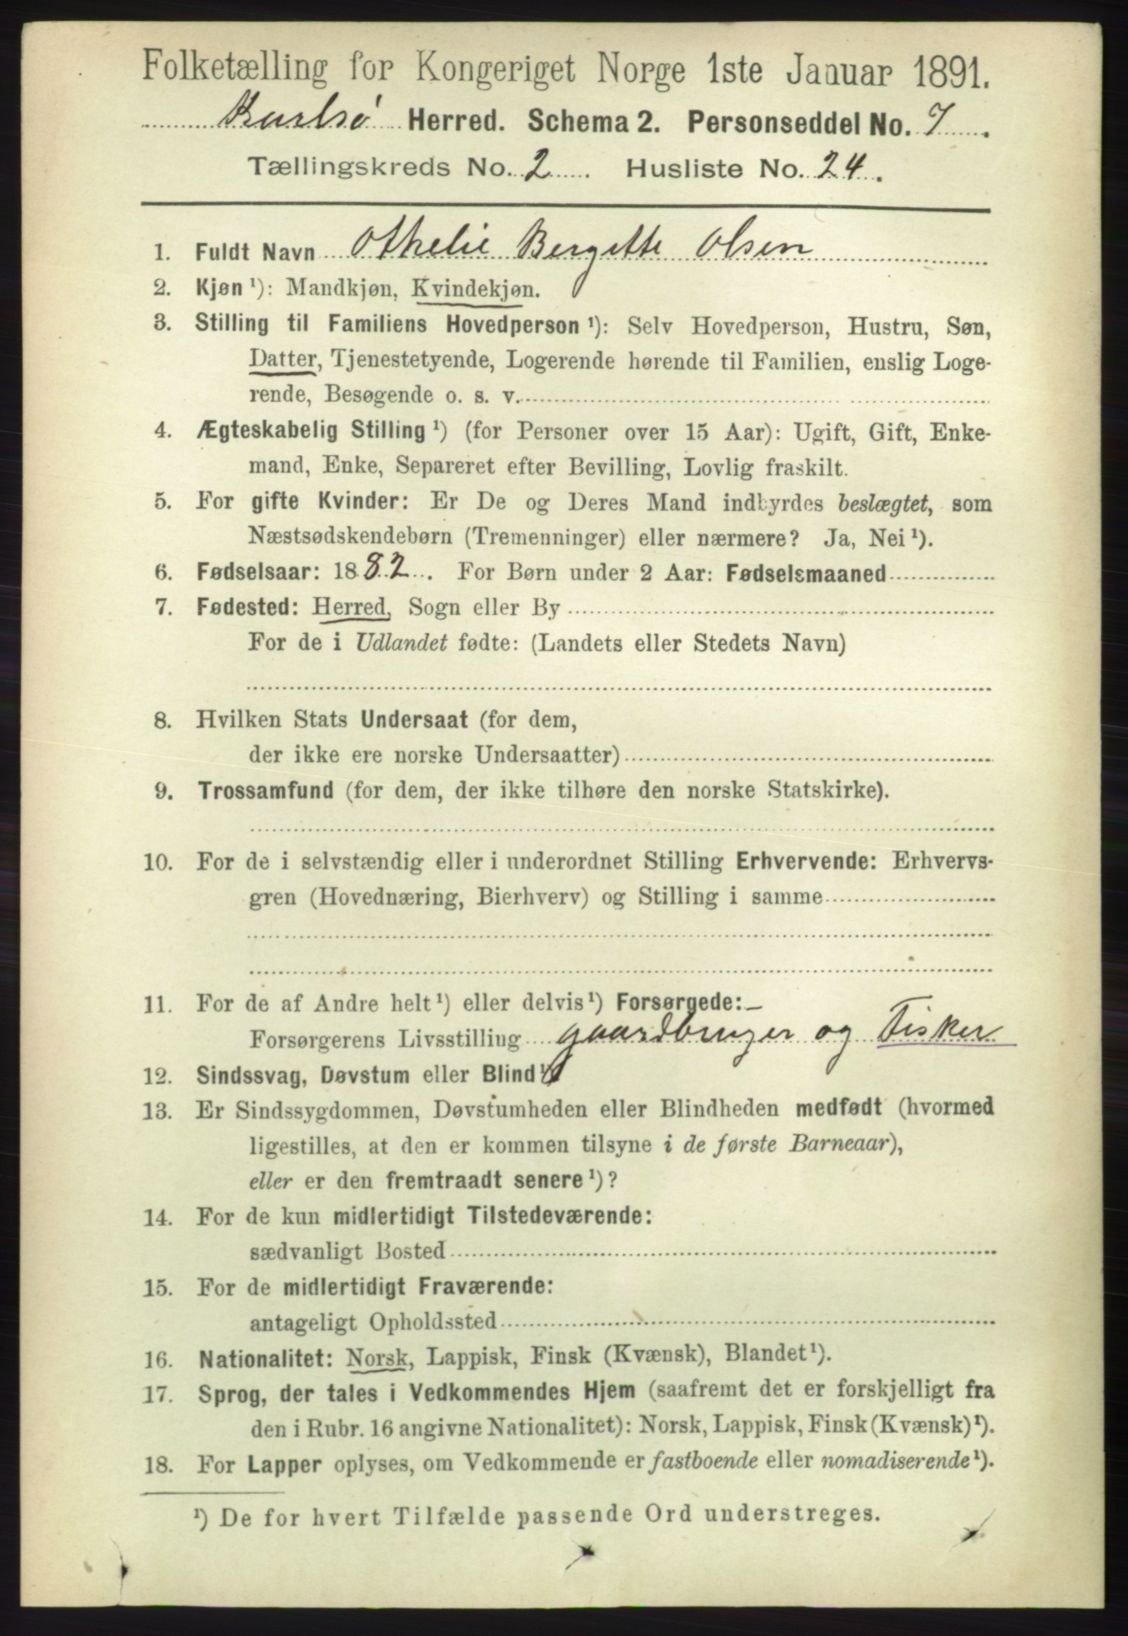 Folketælling for Kongeriget Norge 1ste Januar 1891.
Karlsø Herred. Schema 2. Personseddel No. 7.
Tællingskreds No. 2. Husliste No. 24.
1. Fuldt Navn Othelie Bergitte Olsen
2. Kjøn ¹): Mandkjøn, Kvindekjøn.
3. Stilling til Familiens Hovedperson ¹): Selv Hovedperson, Hustru, Søn,
Datter, Tjenestetyende, Logerende hørende til Familien, enslig Loge-
rende, Besøgende o. s. v.
4. Ægteskabelig Stilling ¹) (for Personer over 15 Aar): Ugift, Gift, Enke-
mand, Enke, Separeret efter Bevilling, Lovlig fraskilt.
5. For gifte Kvinder: Er De og Deres Mand indbyrdes beslægtet, som
Næstsødskendebørn (Tremenninger) eller nærmere? Ja, Nei ¹).
6. Fødselsaar: 1882. For Børn under 2 Aar: Fødselsmaaned
7. Fødested: Herred, Sogn eller By
For de i Udlandet fødte: (Landets eller Stedets Navn)
8. Hvilken Stats Undersaat (for dem,
der ikke ere norske Undersaatter)
9. Trossamfund (for dem, der ikke tilhøre den norske Statskirke).
10. For de i selvstændig eller i underordnet Stilling Erhvervende: Erhvervs-
gren (Hovednæring, Bierhverv) og Stilling i samme
11. For de af Andre helt ¹) eller delvis ¹) Forsørgede:
Forsørgerens Livsstilling gaardbruger og Fisker
12. Sindssvag, Døvstum eller Blind ¹)
13. Er Sindssygdommen, Døvstumheden eller Blindheden medfødt (hvormed
ligestilles, at den er kommen tilsyne i de første Barneaar),
eller er den fremtraadt senere ¹)?
14. For de kun midlertidigt Tilstedeværende:
sædvanligt Bosted
15. For de midlertidigt Fraværende:
antageligt Opholdssted
16. Nationalitet: Norsk, Lappisk, Finsk (Kvænsk), Blandet ¹).
17. Sprog, der tales i Vedkommendes Hjem (saafremt det er forskjelligt fra
den i Rubr. 16 angivne Nationalitet): Norsk, Lappisk, Finsk (Kvænsk) ¹).
18. For Lapper oplyses, om Vedkommende er fastboende eller nomadiserende ¹).
¹) De for hvert Tilfælde passende Ord understreges.